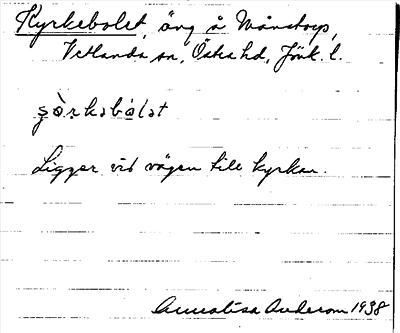 Kyrkebolet, äng å Månstorp,
Vetlanda sn, Östra hd, Jönk. l.
Ligger vid vägen till kyrkan.
Annalisa Anderson 1938